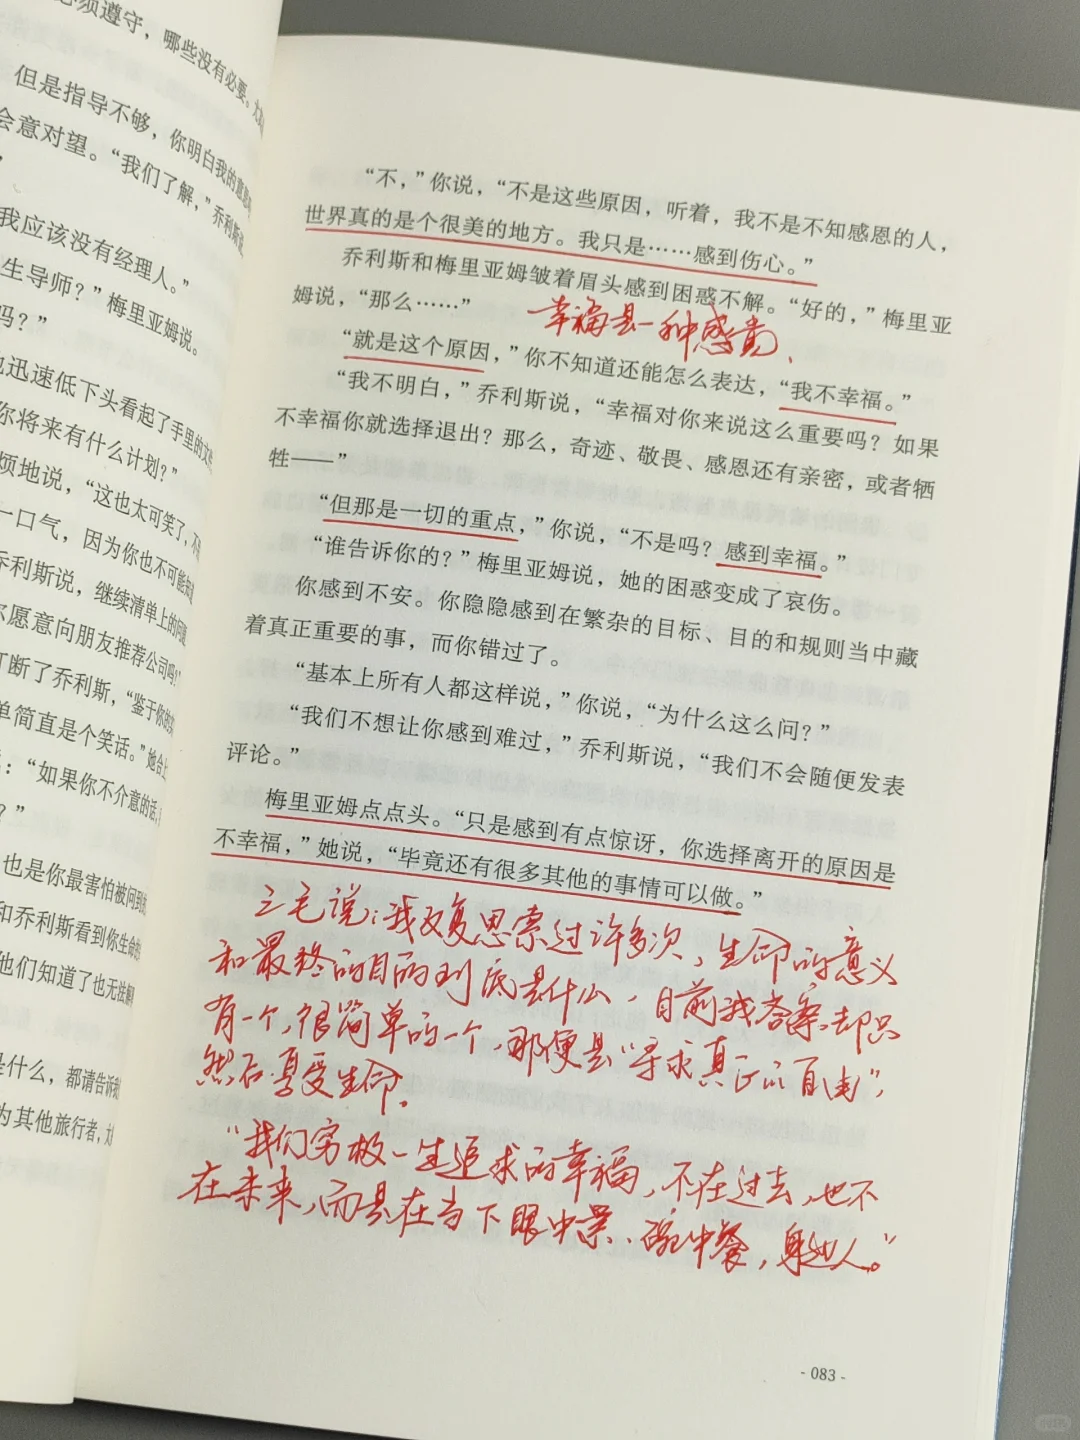 必须遵守，哪些没有必要。尤
但是指导不够，你明白我的意思
会意对望。“我们了解，”乔利斯说
”
我应该没有经理人。”
生导师？”梅里亚姆说。
吗？”
也迅速低下头看起了手里的文件
你将来有什么计划？”
烦地说，“这也太可笑了，不
一口气，因为你也不可能知道
乔利斯说，继续清单上的问题
尔愿意向朋友推荐公司吗？”
打断了乔利斯，“鉴于你的
单简直是个笑话。”她合上
：“如果你不介意的话，
？”
也是你最害怕被问到的
和乔利斯看到你生命的
他们知道了也无法解
是什么，都请告诉我
为其他旅行者，
“不，”你说，“不是这些原因，听着，我不是不知感恩的人，
世界真的是个很美的地方。我只是……感到伤心。”
乔利斯和梅里亚姆皱着眉头感到困惑不解。“好的，”梅里亚
姆说，“那么……”
幸福是一种感觉、
“就是这个原因，”你不知道还能怎么表达，“我不幸福。”
“我不明白，”乔利斯说，“幸福对你来说这么重要吗？如果
不幸福你就选择退出？那么，奇迹、敬畏、感恩还有亲密，或者牺
牲——”
“但那是一切的重点，”你说，“不是吗？感到幸福。”
“谁告诉你的？”梅里亚姆说，她的困惑变成了哀伤。
你感到不安。你隐隐感到在繁杂的目标、目的和规则当中藏
着真正重要的事，而你错过了。
“基本上所有人都这样说，”你说，“为什么这么问？”
“我们不想让你感到难过，”乔利斯说，“我们不会随便发表
评论。”
梅里亚姆点点头。“只是感到有点惊讶，你选择离开的原因是
不幸福，”她说，“毕竟还有很多其他的事情可以做。”
三毛说：我反复思索过许多次，生命的意义
和最终的目的到底是什么，目前我答案却只
有一个，很简单的一个，那便是“寻求真正的自由”，
然后享受生命。
“我们穷极一生追求的幸福，不在过去，也不
在未来，而是在当下眼中景、碗中餐，身边人。”
- 083 -